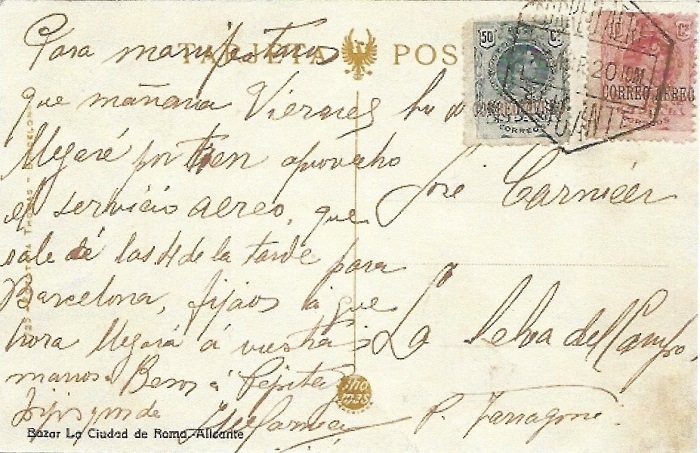 TARJETA POSTAL
Para manifestaros
que mañana Viernes
llegaré por tren aprovecho
el servicio aereo, que
sale á las 4 de la tarde para
Barcelona, fijaos á que
hora llegará á vuestras
manos. Besos á Pepita
50 Cs
CORREO AEREO
CORREOS
Cs
CORREO AEREO
20 10M
ALICANTE
José Carnicer
La Selva del Campo
P. Tarragona
thomas
Bazar La Ciudad de Roma.-Alicante